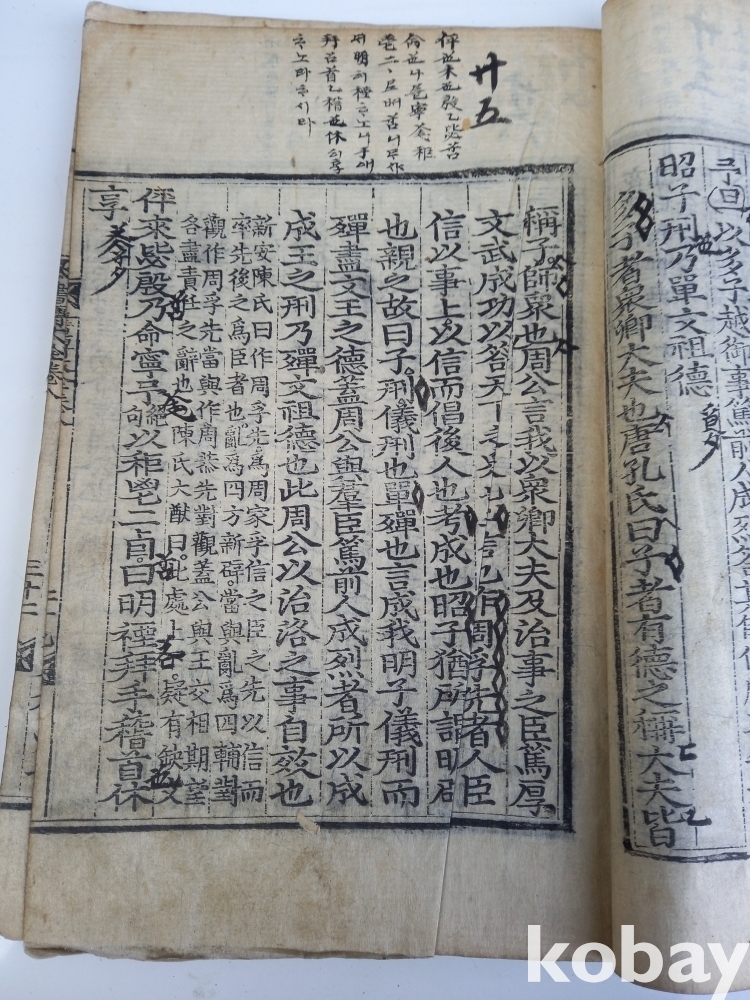 予旦以多子越御事篤前人成烈答其師作
昭子刑乃單文祖德
多子者衆卿大夫也唐孔氏曰子者有德之稱大夫皆
廿五
ᄒᆞ노라ᄒᆞ시다
稱子師衆也周公言我以衆卿大夫及治事之臣篤厚
文武成功以答天下之衆也孚信也作周孚先者人臣
信以事上以信而倡後人也考成也昭子猶所謂明辟
也親之故曰子刑儀刑也單殫也言成我明子儀刑而
殫盡文王之德蓋周公與羣臣篤前人成烈者所以成
成王之刑乃單文祖德也此周公以治洛之事自效也
新安陳氏曰作周孚先爲周家孚信之臣之先以信而
率先後之爲臣者也亂爲四方新辟當與亂爲四輔對
觀作周孚先當與作周恭先對觀蓋公與王交相期望
各盡責任之辭也 陳氏大猷曰此處上下疑有缺文
伻來毖殷乃命寧予絶句以秬鬯二卣曰明禋拜手稽首休
享
kobay